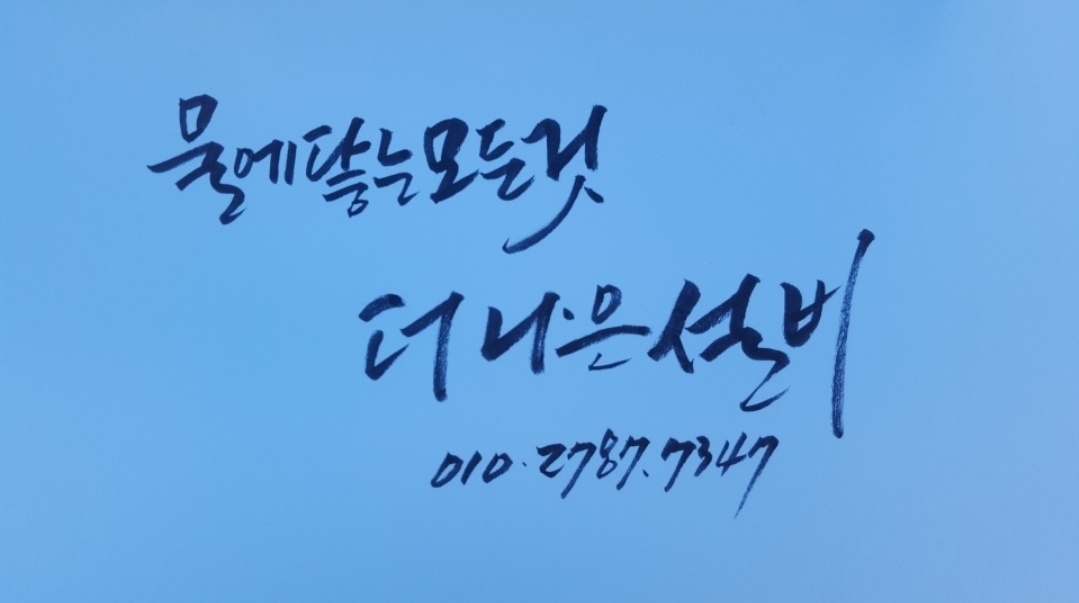 물에 닿는 모든것
더 나은 설비
010.2787.7347